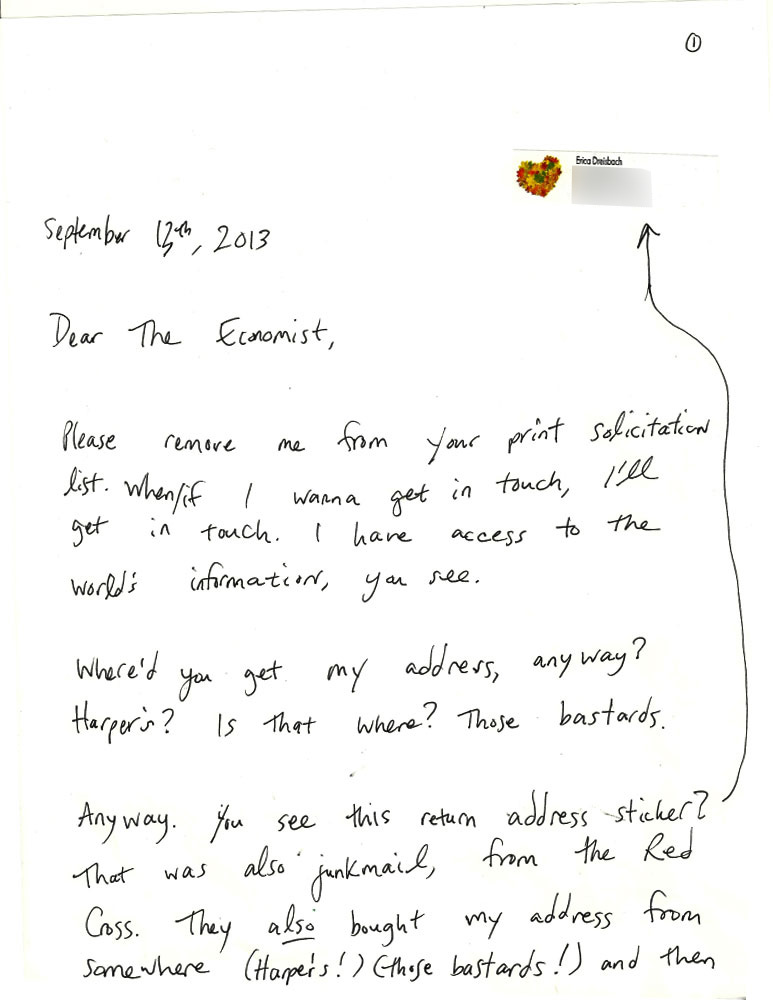 ①
Erica Dreisbach
September 13th, 2013
Dear The Economist,
Please remove me from your print solicitation
list. When/if I wanna get in touch, I'll
get in touch. I have access to the
world's information, you see.
Where'd you get my address, anyway?
Harper's? Is that where? Those bastards.
Anyway. You see this return address sticker?
That was also junkmail, from the Red
Cross. They also bought my address from
somewhere (Harper's!) (those bastards!) and then